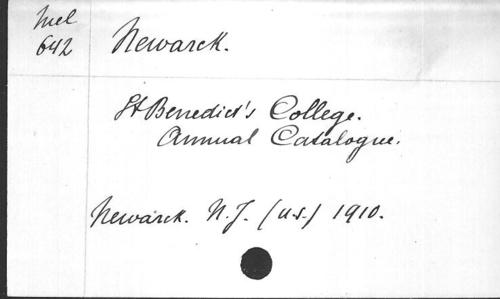 Mel
642
Newarck.
St Benedict's College.
Annual Catalogue.
Newarck. N.J. (u.s.) 1910.